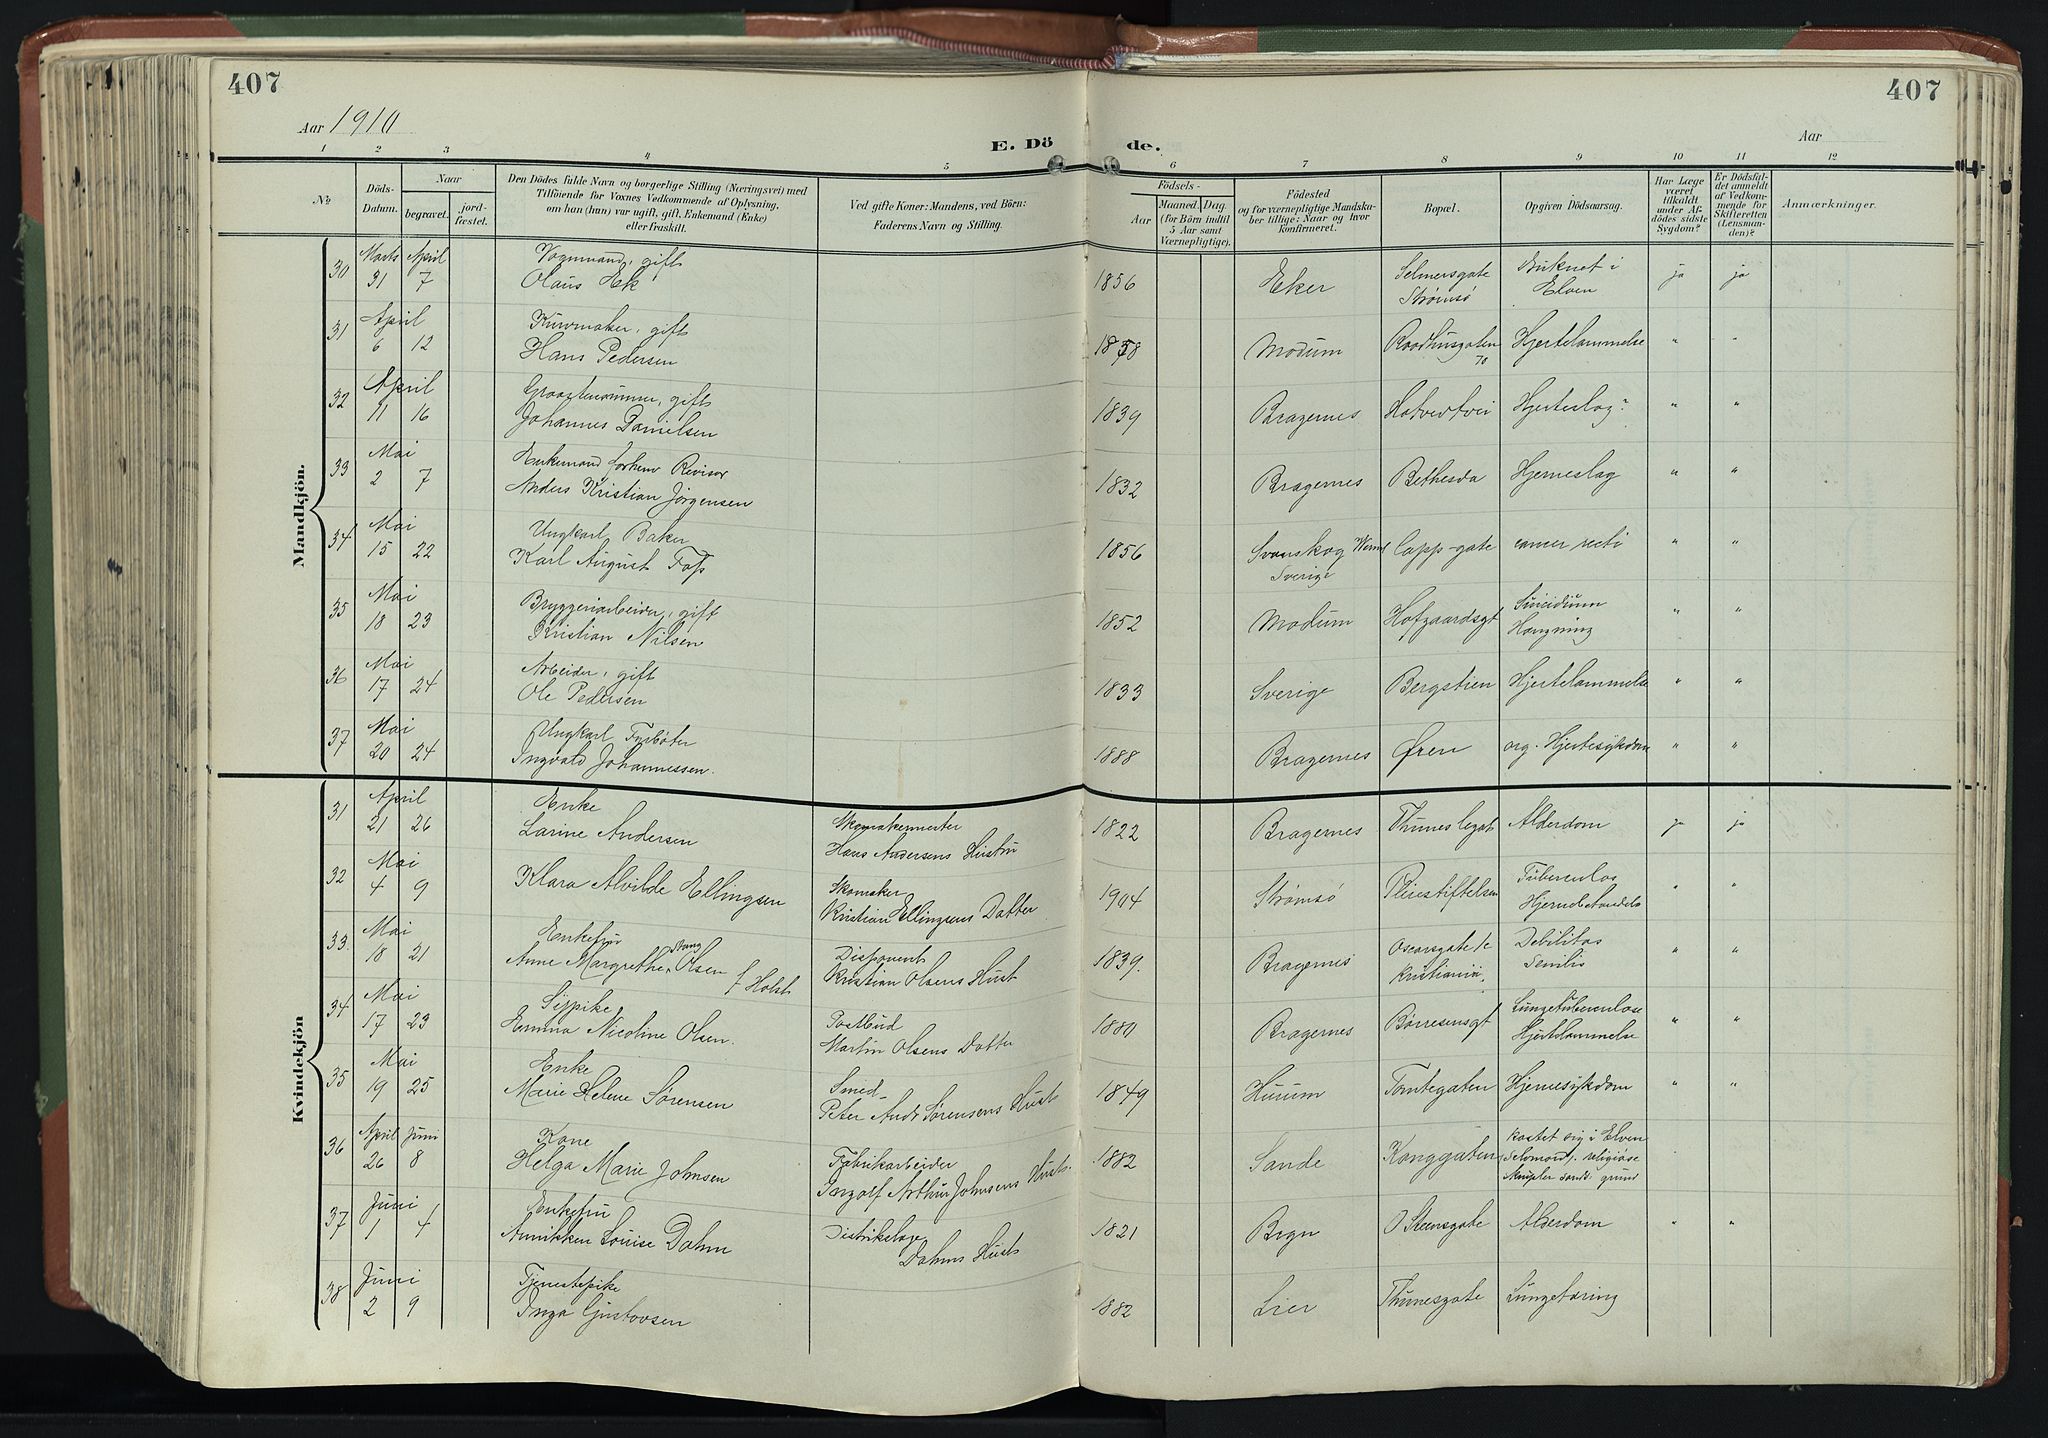 407
407
Aar 1910
Aar
E. Dö de.
1 2 3 4 5 6 7 8 9 10 11 12
No
Döds-Datum.
Naar
begravet.
jord-fæstet.
Den Dödes fulde Navn og borgerlige Stilling (Næringsvei) med
Tilföiende for Voxnes Vedkommende af Oplysning,
om han (hun) var ugift, gift, Enkemand (Enke)
eller fraskilt.
Ved gifte Koner: Mandens, ved Börn:
Faderens Navn og Stilling.
Födsels-
Aar
Maaned. Dag.
(for Börn indtil
5 Aar samt
Værnepligtige).
Födested
og for værnepligtige Mandska-
ber tillige: Naar og hvor
konfirmeret.
Bopæl.
Opgiven Dödsaarsag.
Har Læge
været
tilkaldt
under Af-
dödes sidste
Sygdom?
Er Dödsfal-
det anmeldt
af Vedkom-
mende for
Skifteretten
(Lensman-
den)?
Anmærkninger.
Mandkjön.
30 Marts April Vognmand, gift Selmersgate Druknet i
31 7 Olaus Ek 1856 Eker Strømsø Elven ja ja
31 April Kurvmaker, gift
6 12 Hans Pedersen Modum Raadhusgaten 70 Hjertelammelse " "
32 April gift
11 16 Johannes Danielsen 1839 Bragernes Hotvedtvei Hjerteslag? " "
33 Mai Enkemand forhenv Revisor
2 7 Anders Kristian Jørgensen 1832 Bragernes Bethesda Hjerneslag " "
34 Mai Ungkarl, Baker
15 22 Karl August 1856 Svanskog Werml Sverige Capp-gate cancer recti " "
35 Mai Bryggeriarbeider, gift
18 23 Kristian Nilsen 1852 Modum Hofgaardsgt Suicidium Hængning " "
36 Mai Arbeider, gift
17 24 Ole Pedersen 1833 Sverige Bergstien Hjertelammelse " "
37 Mai Ungkarl Fyrbøter
20 24 Ingvald Johannessen. 1888 Bragernes Øren org. Hjertesykdom " "
Kvindekjön
31 April Enke Skomakermester
21 26 Larine Andersen Hans Andersens Hustru 1822 Bragernes Thunes legat Alderdom ja ja
32 Mai Skomaker
4 9 Klara Alvilde Ellingsen Kristian Ellingsens Datter 1904 Strømsø Pleiestiftelsen Tuberculos Hjernebetændels " "
33. Mai Enkefru Disponent
18 21 Anne Margrethe Stang Olsen f Holst Kristian Olsens Hust 1839. Bragernes Oscarsgate Kristiania. Debilitas Senilis " "
34 Mai Sypike Postbud
17 23 Emma Nicoline Olsen. Martin Olsens Datter Bragernes Børresensgt Lungetuberculose Hjertelammelse " "
35 Mai Enke Smed
19 25 Marie Helene Sørensen Peter Andr Sørensens Hust 1849 Hurum Tomtegaten Hjernesykdom " "
36 April Juni Kone Fabrikarbeider
26 8 Helga Marie Johnsen Ingolf Arthur Johnsens Hust. 1882 Sande Konggaten kastet sig i Elven Selvmord; religiøse grund
37 Juni Enkefru Distriktslæge
1 4 Annikken Louise Dahm Dahms Hust 1821 O Steensgate Alderdom " "
38 Juni Tjenestepike
2 9 Inga Gustavsen 1882 Lier Thunesgate Lungetæring